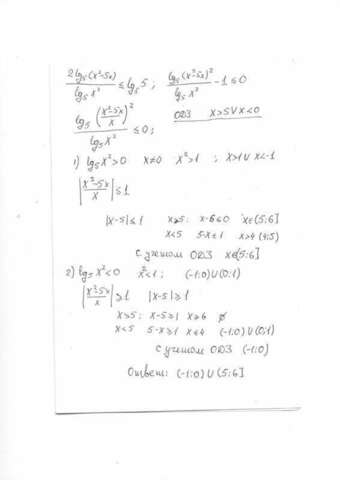 2lg₅(x²-5x) / lg₅x² ≤ lg₅5 ; lg₅(x²-5x)² / lg₅x² - 1 ≤ 0
lg₅((x²-5x)/x)² / lg₅x² ≤ 0 ; ОДЗ x>5 ∨ x<0
1) lg₅x²>0 x≠0 x²>1 ; x>1 ∪ x<-1
|(x²-5x)/x| ≤ 1
|x-5| ≤ 1 x≥5: x-6≤0 x∈(5:6]
x<5 5-x≤1 x>4 (4:5)
С учетом ОДЗ x∈(5:6]
2) lg₅x²<0 x²<1 ; (-1:0)∪(0:1)
|(x²-5x)/x| ≥ 1 |x-5| ≥ 1
x>5: x-5≥1 x≥6 ∅
x<5 5-x≥1 x≤4 (-1:0)∪(0:1)
С учетом ОДЗ (-1:0)
Ответ: (-1:0)∪(5:6]